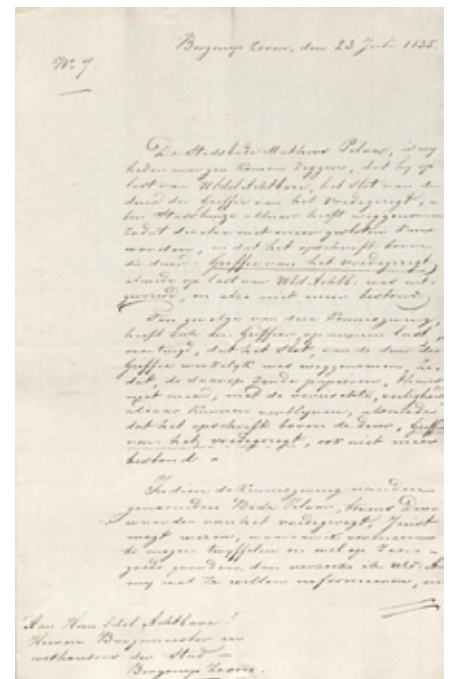 Bergen op Zoom, den 23 Juli 1835.
No. 7.
De Stadsbode Matheus Pelaar, is my
heden morgen komen zeggen, dat hy op
last van UEdel Achtbare, het slot van de
deur der Griffie van het vredegeregt, 
ten Stadhuize alhier heeft weggenomen
zodat dezelve niet meer gesloten kan
worden, en dat het opschrift boven
die deur: Griffie van het vredegeregt,
almede op last van UEd Achtb: was uit-
en alzo niet meer bestond.
Ten gevolge van deze kennisgeving,
heeft zich de Griffier, op mynen last,
overtuigd, dat het slot, van de deur der
Griffie werkelyk was weggenomen, zo-
dat, de daarop zynde papieren, thans
niet meer, met de vereischte veiligheid
aldaar kunnen verblyven, alsmede
dat het opschrift boven de deur, Griffie
van het vredegeregt, ook niet meer
bestond.
Indien de kennisgeving van den
genoemden Bode Pelaar, tevens Deur-
waarder van het vredegeregt, juist
mogt wezen, waaraan ik vermeen
te mogen twyffelen en wel op zeer
goede gronden, dan verzoeke ik UEd: A
my wel te willen informeeren,
Aan Hun Edel Achtbare!
Heeren Burgemeester en
wethouders der Stad
Bergen op Zoom.